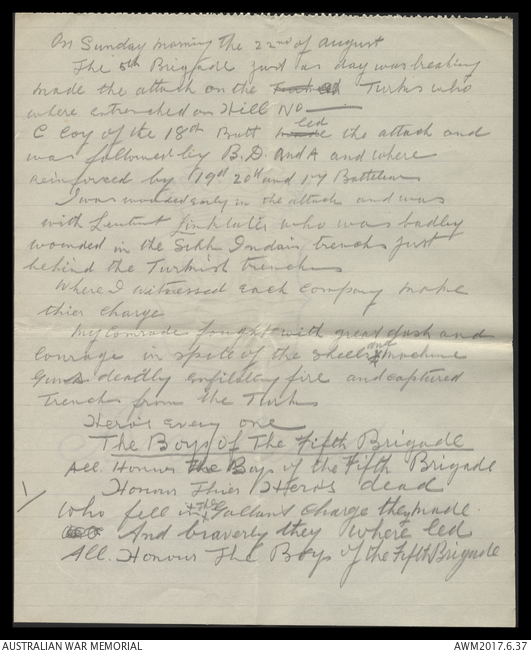 On Sunday morning the 22nd of August
The 5th Brigade just as day was breaking
made the attack on the Turks who
where entrenched on Hill No
C Coy of the 18th Batt led the attack and
was followed by B. D. and A and where
reinforced by 19th 20th and 17 Battelion
I was wounded early in the attack and was
with Leutent Linklater who was badley
wounded in the Sikh Indain trenchs just
behind the Turkish trenches
Where I witnessed each company make
thier charge
My Comrade fought with great dash and
Courage in spite of the shells and machine
Guns deadly enfilting fire and captured
trenchs from the Turks
Heros every one
The Boys Of The Fifth Brigade
All. Honour the Boys of the Fifth Brigade
Honour Thier Heros dead
Who fell in the Gallant Charge they made
And braverly they where led
All. Honour The Boys of the Fifth Brigade
AUSTRALIAN WAR MEMORIAL
AWM2017.6.37